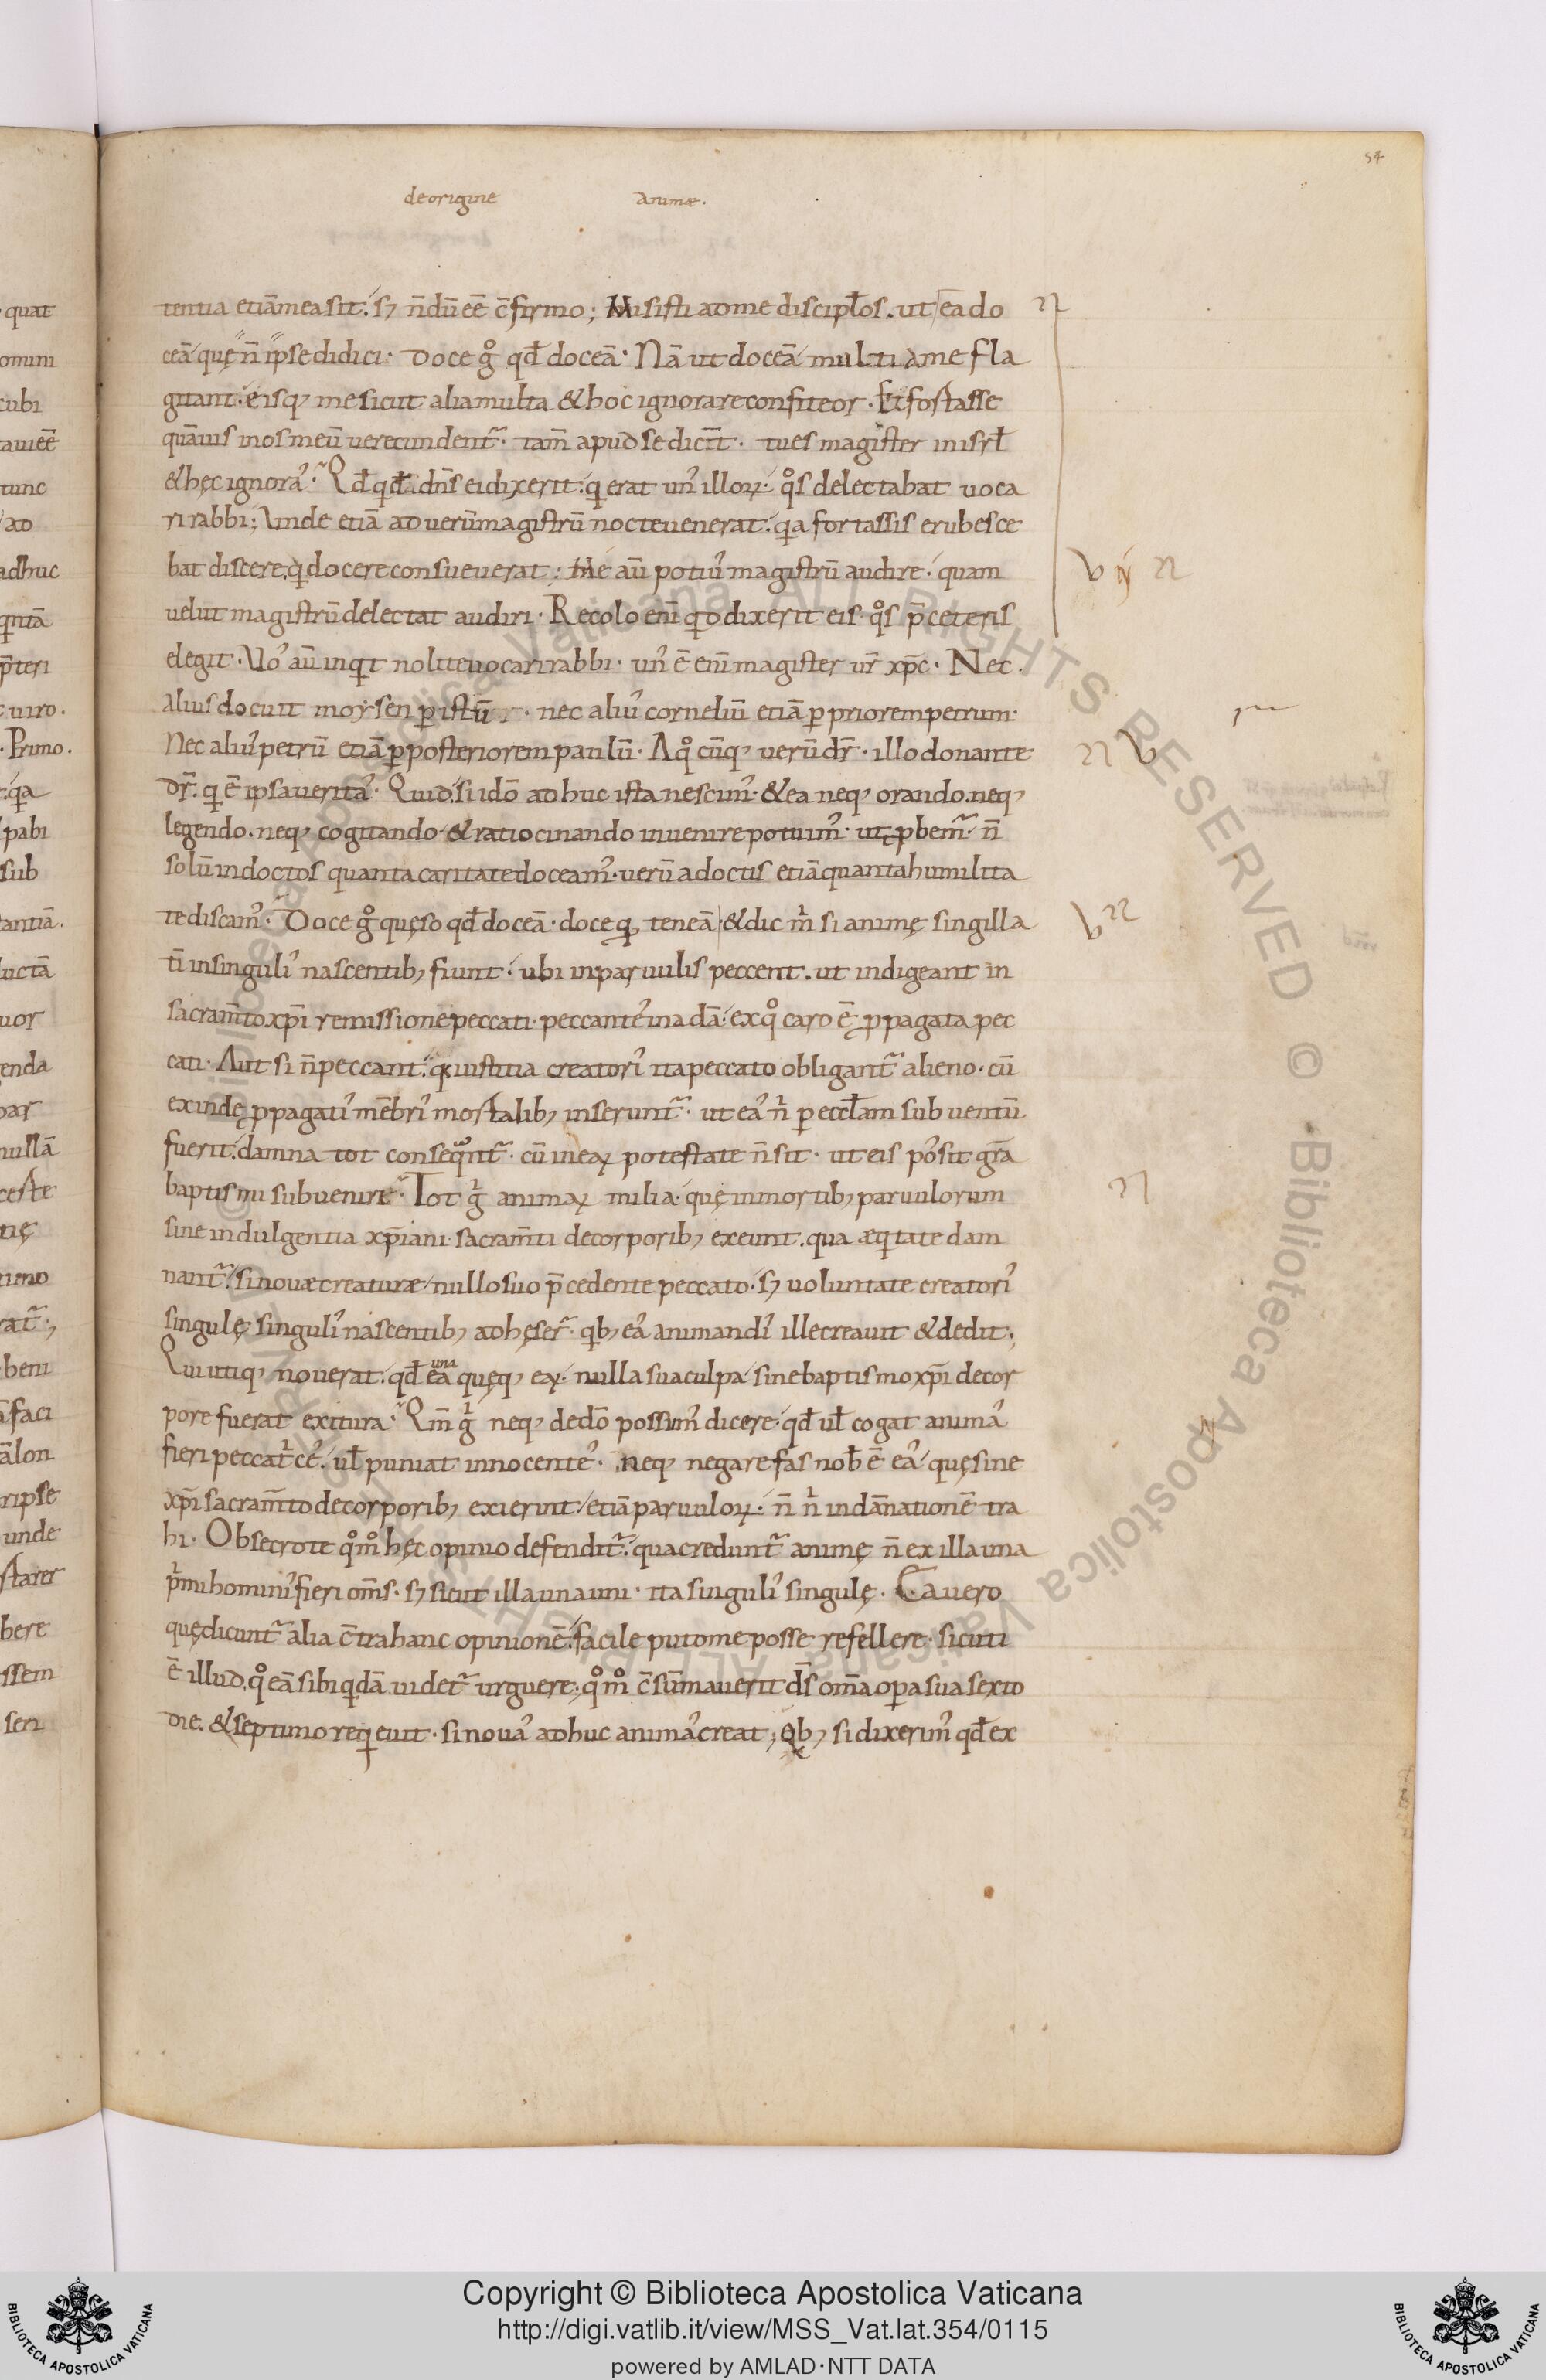 54
de origine animæ.
tentia etiā mea sit. sꝫ n̄dū eē c̄firmo; Misisti ad me discipl̄os. ut ea do
ceā quę n̄ ipse didici. Doce gͦ qđ doceā. Nā ut doceā multi a me fla
gitant. eisq; me sicut alia multa & hoc ignorare confiteor. Et fortasse
quāuis in os meū uerecundent᷑. tam̄ apud se dic̄t. tu es magister in isrł
& hęc ignoras. Qđ qđ dn̄s ei dixerit. qi erat un᾽ illoꝝ. qͦs delectabat uoca
ri rabbi; Unde etiā ad uerū magistrū nocte uenerat. qia fortassis erubesce
bat discere. qi docere consueuerat; Me aū poti᾽ magistrū audire. quam
uelut magistrū delectat audiri. Recolo eni᷑ qid dixerit eis. qͦs p̄ ceteris
elegit. Uo᾽ aū inqit nolite uocari rabbi. un᾽ ē eni᷑ magister ur̄ xp̄c. Nec.
alius docuit moysen ꝑ istū. nec ali᾽ corneliū etiā ꝑ priorem petrum.
Nec ali᾽ petrū etiā ꝑ posteriorem paulū. A qͦ cūq; uerū dr̄. illo donante
dr̄. qi ē ipsa uerita᾽. Quid. si idō adhuc ista nescim᾽. & ea neq; orando. neq;
legendo. neq; cogitando. & ratiocinando inuenire potuim᾽. ut ꝓbem᾽. n̄
solū indoctos quanta caritate doceam᾽. uerū a doctis etiā quanta humilita
te discam᾽. Doce gͦ quęso qđ doceā. doce qi teneā. & dic m̄ si animę singilla
tī in singuli᾽ nascentibꝫ fiunt. ubi in paruulis peccent. ut indigeant in
sacram̄to xp̄i remissionē peccati. peccante᾽ in adā. ex qͦ caro ē ꝓpagata pec
cati. Aut si n̄ peccant. qa iustitia creatori᾽ ita peccato obligant᷑ alieno. cū
exinde ꝓpagati᾽ mēbri᾽ mortalibꝫ inserunt᷑. ut ea᾽ nͥ ꝑ ecclam sub uentū
fuerit. damna tot conseqͣnt᷑. cū in eaꝝ potestate n̄ sit. ut eis possit gr̄a
baptismi subueniri. Tot gͥ animaꝝ milia. quę in mortibꝫ paruulorum
sine indulgentia xp̄iani sacram̄ti de corporibꝫ exeunt. qua æqitate dam
nant᷑. si nouæ creaturæ nullo suo p̄cedente peccato. sꝫ uoluntate creatori᾽
singulę singuli᾽ nascentibꝫ adhęser᷑. qibꝫ ea᾽ animandi᾽ ille creauit & dedit;
una
Qui utiq; nouerat. qđ ea quęq; eaꝝ. nulla sua culpa sine baptismo xp̄i de cor
pore fuerat exitura. Qm̄ gͥ neq; de dō possum᾽ dicere. qđ ul̄ cogat anima᾽
fieri peccatͥce᾽. ul̄ puniat innocente᾽. neq; negare fas nob̄ ē ea᾽ quę sine
xp̄i sacram̄to de corporibꝫ exierint etiā paruuloꝝ. n̄ nͥ in dānationē tra
hi. Obsecro te qͦmͦ hęc opinio defendit᷑. qua credunt᷑ animę n̄ ex illa una
pͥmi homini᾽ fieri om̄s. sꝫ sicut illa una uni. ita singuli᾽ singulę. Ea uero
quę dicunt᷑ alia c̄tra hanc opinionē. facile puto me posse refellere. sicuti
ē illud. qͦ eā sibi qidā uidet᷑ urguere. qͦmͦ c̄sūmauerit d̄s om̄a opa sua sexto
die. & septimo reqieuit. si noua᾽ adhuc anima᾽ creat; Qibꝫ si dixerim᾽ qđ ex
Copyright © Biblioteca Apostolica Vaticana
http://digi.vatlib.it/view/MSS_Vat.lat.354/0115
powered by AMLAD·NTT DATA
BIBLIOTECA APOSTOLICA VATICANA
BIBLIOTECA APOSTOLICA VATICANA